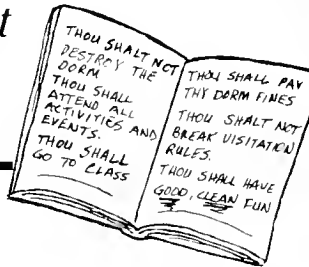 t
THOU SHALT NOT
DESTROY THE
DORM
THOU SHALL
ATTEND ALL
ACTIVITIES AND
EVENTS.
THOU SHALL
GO TO CLASS
THOU SHALL PAY
THY DORM FINES
THOU SHALT NOT
BREAK VISITATION
RULES.
THOU SHALL HAVE
GOOD, CLEAN FUN